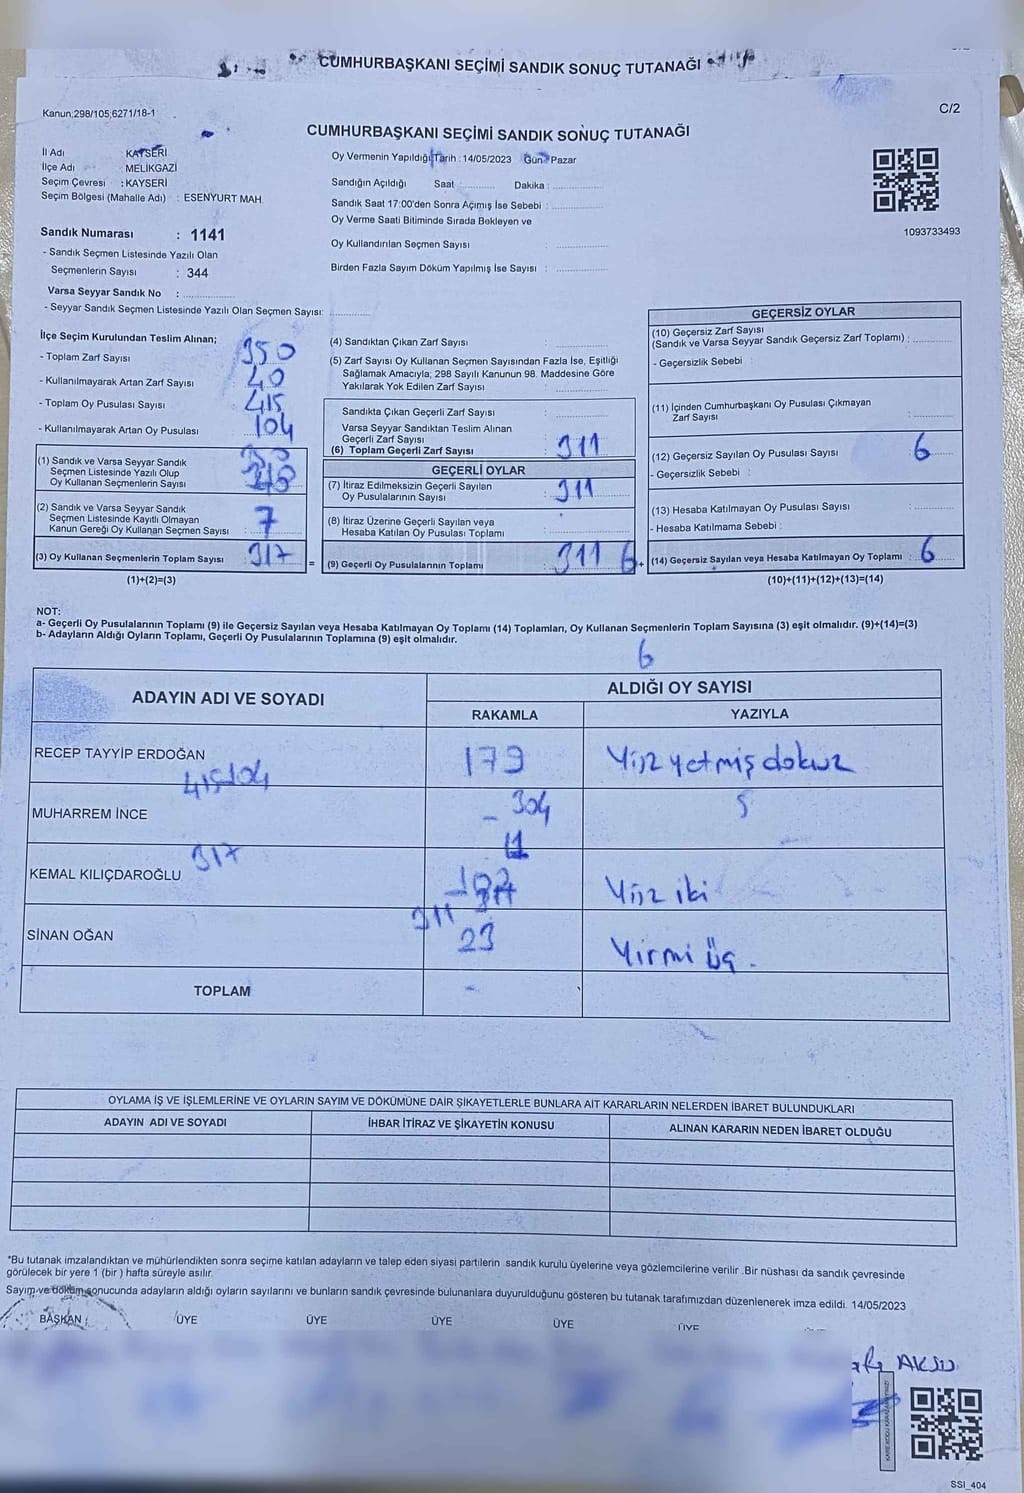 CUMHURBAŞKANI SEÇİMİ SANDIK SONUÇ TUTANAĞI
Kanun;298/105;6271/18-1
C/2
CUMHURBAŞKANI SEÇİMİ SANDIK SONUÇ TUTANAĞI
İl Adı KAYSERİ
İlçe Adı MELİKGAZİ
Seçim Çevresi : KAYSERİ
Seçim Bölgesi (Mahalle Adı) : ESENYURT MAH.
Oy Vermenin Yapıldığı Tarih : 14/05/2023 Gün: Pazar
Sandığın Açıldığı Saat : Dakika :
Sandık Saat 17:00'den Sonra Açımış İse Sebebi :
Oy Verme Saati Bitiminde Sırada Bekleyen ve
Oy Kullandırılan Seçmen Sayısı :
Birden Fazla Sayım Döküm Yapılmış İse Sayısı :
1093733493
Sandık Numarası : 1141
- Sandık Seçmen Listesinde Yazılı Olan
Seçmenlerin Sayısı : 344
Varsa Seyyar Sandık No :
- Seyyar Sandık Seçmen Listesinde Yazılı Olan Seçmen Sayısı:
İlçe Seçim Kurulundan Teslim Alınan;
- Toplam Zarf Sayısı 350
- Kullanılmayarak Artan Zarf Sayısı 40
- Toplam Oy Pusulası Sayısı 415
- Kullanılmayarak Artan Oy Pusulası 104
(1) Sandık ve Varsa Seyyar Sandık
Seçmen Listesinde Yazılı Olup
Oy Kullanan Seçmenlerin Sayısı
(2) Sandık ve Varsa Seyyar Sandık
Seçmen Listesinde Kayıtlı Olmayan
Kanun Gereği Oy Kullanan Seçmen Sayısı 7
(3) Oy Kullanan Seçmenlerin Toplam Sayısı 317
(1)+(2)=(3)
(4) Sandıktan Çıkan Zarf Sayısı :
(5) Zarf Sayısı Oy Kullanan Seçmen Sayısından Fazla İse, Eşitliği
Sağlamak Amacıyla; 298 Sayılı Kanunun 98. Maddesine Göre
Yakılarak Yok Edilen Zarf Sayısı :
Sandıkta Çıkan Geçerli Zarf Sayısı :
Varsa Seyyar Sandıktan Teslim Alınan
Geçerli Zarf Sayısı :
(6) Toplam Geçerli Zarf Sayısı : 311
GEÇERLİ OYLAR
(7) İtiraz Edilmeksizin Geçerli Sayılan
Oy Pusulalarının Sayısı : 311
(8) İtiraz Üzerine Geçerli Sayılan veya
Hesaba Katılan Oy Pusulası Toplamı :
= (9) Geçerli Oy Pusulalarının Toplamı : 311 6 +
GEÇERSİZ OYLAR
(10) Geçersiz Zarf Sayısı
(Sandık ve Varsa Seyyar Sandık Geçersiz Zarf Toplamı) :
- Geçersizlik Sebebi :
(11) İçinden Cumhurbaşkanı Oy Pusulası Çıkmayan
Zarf Sayısı :
(12) Geçersiz Sayılan Oy Pusulası Sayısı : 6
- Geçersizlik Sebebi :
(13) Hesaba Katılmayan Oy Pusulası Sayısı :
- Hesaba Katılmama Sebebi :
(14) Geçersiz Sayılan veya Hesaba Katılmayan Oy Toplamı : 6
(10)+(11)+(12)+(13)=(14)
NOT:
a- Geçerli Oy Pusulalarının Toplamı (9) ile Geçersiz Sayılan veya Hesaba Katılmayan Oy Toplamı (14) Toplamları, Oy Kullanan Seçmenlerin Toplam Sayısına (3) eşit olmalıdır. (9)+(14)=(3)
b- Adayların Aldığı Oyların Toplamı, Geçerli Oy Pusulalarının Toplamına (9) eşit olmalıdır.
6
ADAYIN ADI VE SOYADI ALDIĞI OY SAYISI
RAKAMLA YAZIYLA
RECEP TAYYİP ERDOĞAN 179 Yüz yetmiş dokuz
415104
MUHARREM İNCE - 304 5
11
317
KEMAL KILIÇDAROĞLU Yüz iki
311
SİNAN OĞAN 23 Yirmi üç.
TOPLAM -
OYLAMA İŞ VE İŞLEMLERİNE VE OYLARIN SAYIM VE DÖKÜMÜNE DAİR ŞİKAYETLERLE BUNLARA AİT KARARLARIN NELERDEN İBARET BULUNDUKLARI
ADAYIN ADI VE SOYADI İHBAR İTİRAZ VE ŞİKAYETİN KONUSU ALINAN KARARIN NEDEN İBARET OLDUĞU
*Bu tutanak imzalandıktan ve mühürlendikten sonra seçime katılan adayların ve talep eden siyasi partilerin sandık kurulu üyelerine veya gözlemcilerine verilir .Bir nüshası da sandık çevresinde
görülecek bir yere 1 (bir ) hafta süreyle asılır.
Sayım ve döküm sonucunda adayların aldığı oyların sayılarını ve bunların sandık çevresinde bulunanlara duyurulduğunu gösteren bu tutanak tarafımızdan düzenlenerek imza edildi. 14/05/2023
BAŞKAN ÜYE ÜYE ÜYE ÜYE ÜYE
AKSU
SSI_404